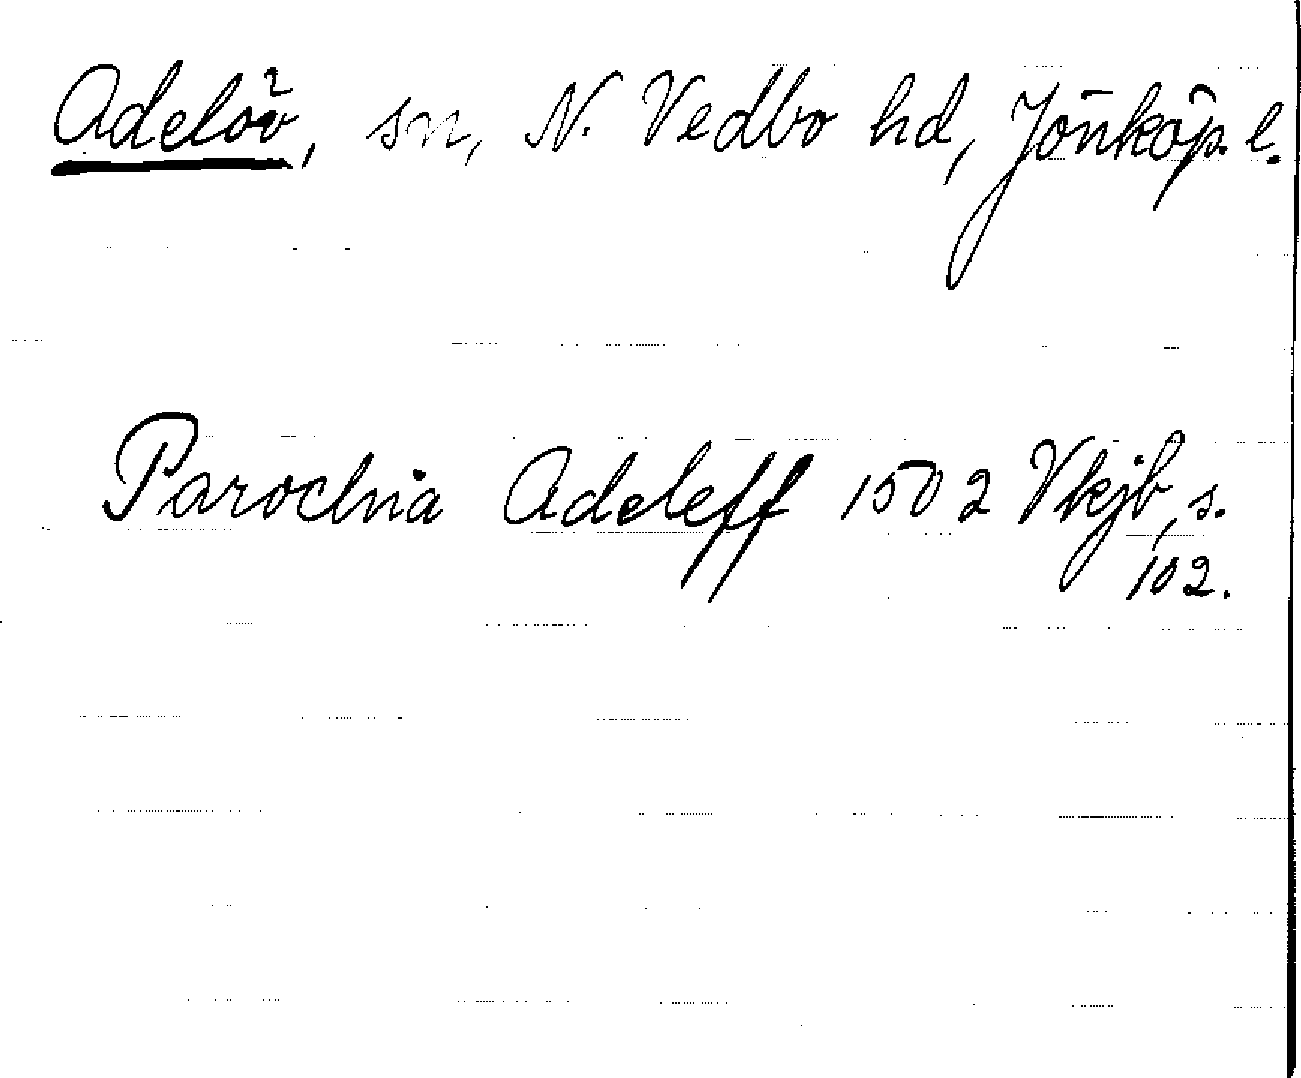 Adelöv, sn, N. Vedbo hd, Jönköp. l.
Parochia Adeleff 1502 Vkjb, s.
102.